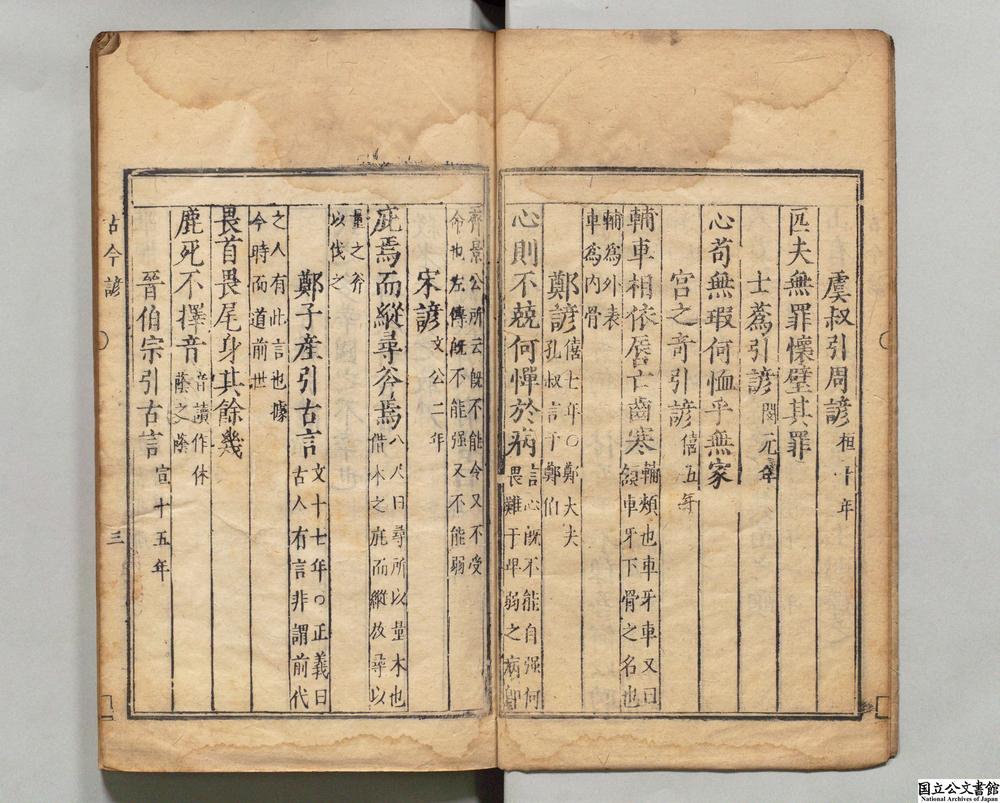 虞叔引周諺桓十年
匹夫無罪懷璧其罪
士蒍引諺閔元年
心苟無瑕何恤乎無家
宮之奇引諺僖五年
輔車相依唇亡齒寒輔頰也車牙車又曰頷車牙下骨之名也
輔爲外表車爲內骨
鄭諺僖七年○鄭大夫孔叔言于鄭伯
心則不兢何憚於病言心旣不能自强何畏難于卑弱之病卽
齊景公所云旣不能令又不受命也左傳旣不能强又不能弱
宋諺文公二年
庇焉而縱尋斧焉八尺曰尋所以量木也借木之庇而縱放尋以
量之斧以伐之
鄭子產引古言文十七年○正義曰古人有言非謂前代
之人有此言也據今時而道前世
畏首畏尾身其餘幾
鹿死不擇音音讀作休蔭之蔭
晉伯宗引古言宣十五年
古今諺
三
国立公文書館
National Archives of Japan